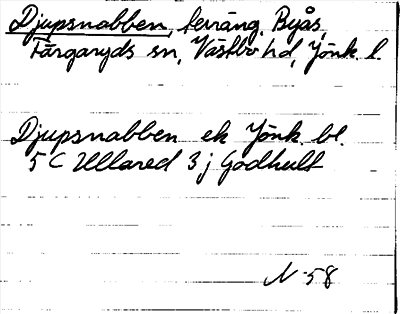 Djupsnabben, terräng. Byås,
Färgaryds sn, Västbo hd, Jönk. l.
Djupsnabben ek Jönk. bl.
5 C Ullared 3 j Godhult
N 58